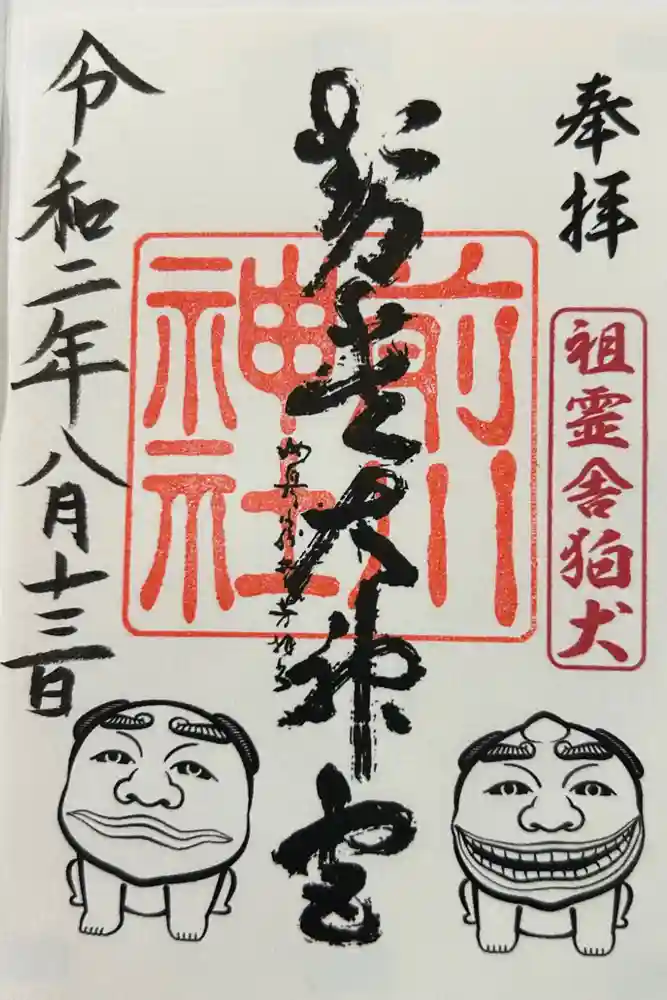 奉拝
祖霊舎狛犬
大神宮
前川
神社
令和二年八月十三日